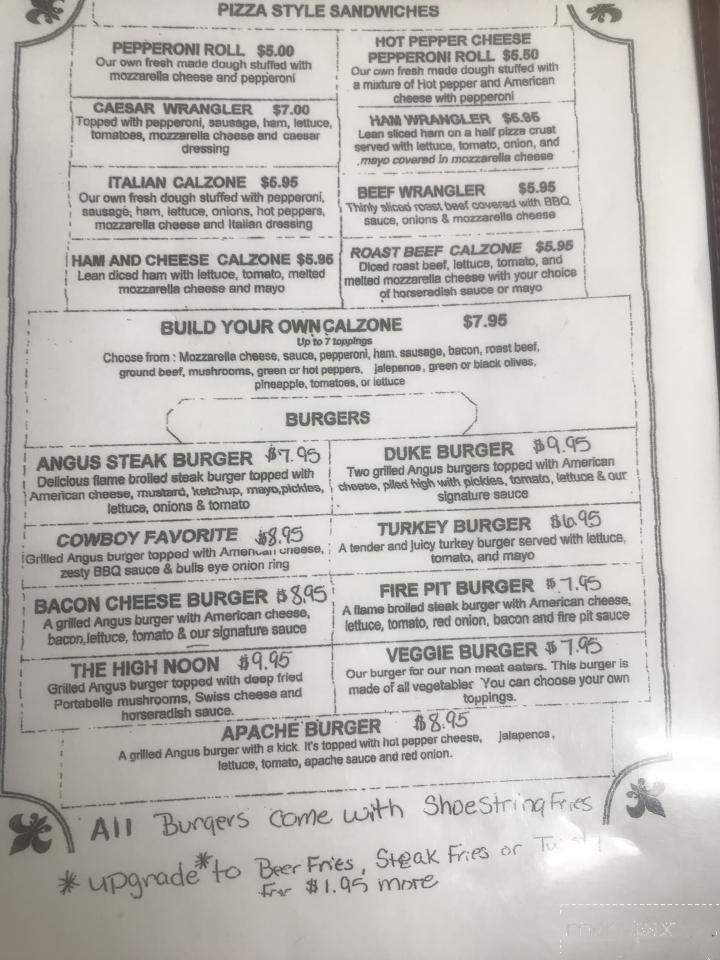 PIZZA STYLE SANDWICHES
PEPPERONI ROLL $5.00
Our own fresh made dough stuffed with
mozzarella cheese and pepperoni
HOT PEPPER CHEESE
PEPPERONI ROLL $5.50
Our own fresh made dough stuffed with
a mixture of Hot pepper and American
cheese with pepperoni
CAESAR WRANGLER $7.00
Topped with pepperoni, sausage, ham, lettuce,
tomatoes, mozzarella cheese and caesar
dressing
HAM WRANGLER $5.95
Lean sliced ham on a half pizza crust
served with lettuce, tomato, onion, and
mayo covered in mozzarella cheese
ITALIAN CALZONE $5.95
Our own fresh dough stuffed with pepperoni,
sausage, ham, lettuce, onions, hot peppers,
mozzarella cheese and Italian dressing
BEEF WRANGLER $5.95
Thinly sliced roast beef covered with BBQ
sauce, onions & mozzarella cheese
HAM AND CHEESE CALZONE $5.95
Lean diced ham with lettuce, tomato, melted
mozzarella cheese and mayo
ROAST BEEF CALZONE $5.95
Diced roast beef, lettuce, tomato, and
melted mozzarella cheese with your choice
of horseradish sauce or mayo
BUILD YOUR OWN CALZONE $7.95
Up to 7 toppings
Choose from : Mozzarella cheese, sauce, pepperoni, ham. sausage, bacon, roast beef,
ground beef, mushrooms, green or hot peppers, jalepenos, green or black olives,
pineapple, tomatoes, or lettuce
BURGERS
ANGUS STEAK BURGER $7.95
Delicious flame broiled steak burger topped with
American cheese, mustard, ketchup, mayo,pickles,
lettuce, onions & tomato
DUKE BURGER $9.95
Two grilled Angus burgers topped with American
cheese, piled high with pickles, tomato, lettuce & our
signature sauce
COWBOY FAVORITE $8.95
Grilled Angus burger topped with American cheese,
zesty BBQ sauce & bulls eye onion ring
TURKEY BURGER $6.95
A tender and juicy turkey burger served with lettuce,
tomato, and mayo
BACON CHEESE BURGER $8.95
A grilled Angus burger with American cheese,
bacon,lettuce, tomato & our signature sauce
FIRE PIT BURGER $7.95
A flame broiled steak burger with American cheese,
lettuce, tomato, red onion, bacon and fire pit sauce
THE HIGH NOON $9.95
Grilled Angus burger topped with deep fried
Portabelle mushrooms, Swiss cheese and
horseradish sauce.
VEGGIE BURGER $7.95
Our burger for our non meat eaters. This burger is
made of all vegetables You can choose your own
toppings.
APACHE BURGER $8.95
A grilled Angus burger with a kick. It's topped with hot pepper cheese, jalapenos,
lettuce, tomato, apache sauce and red onion.
All Burgers come with Shoestring Fries
* upgrade* to Beer Fries, Steak Fries or
For $1.95 more